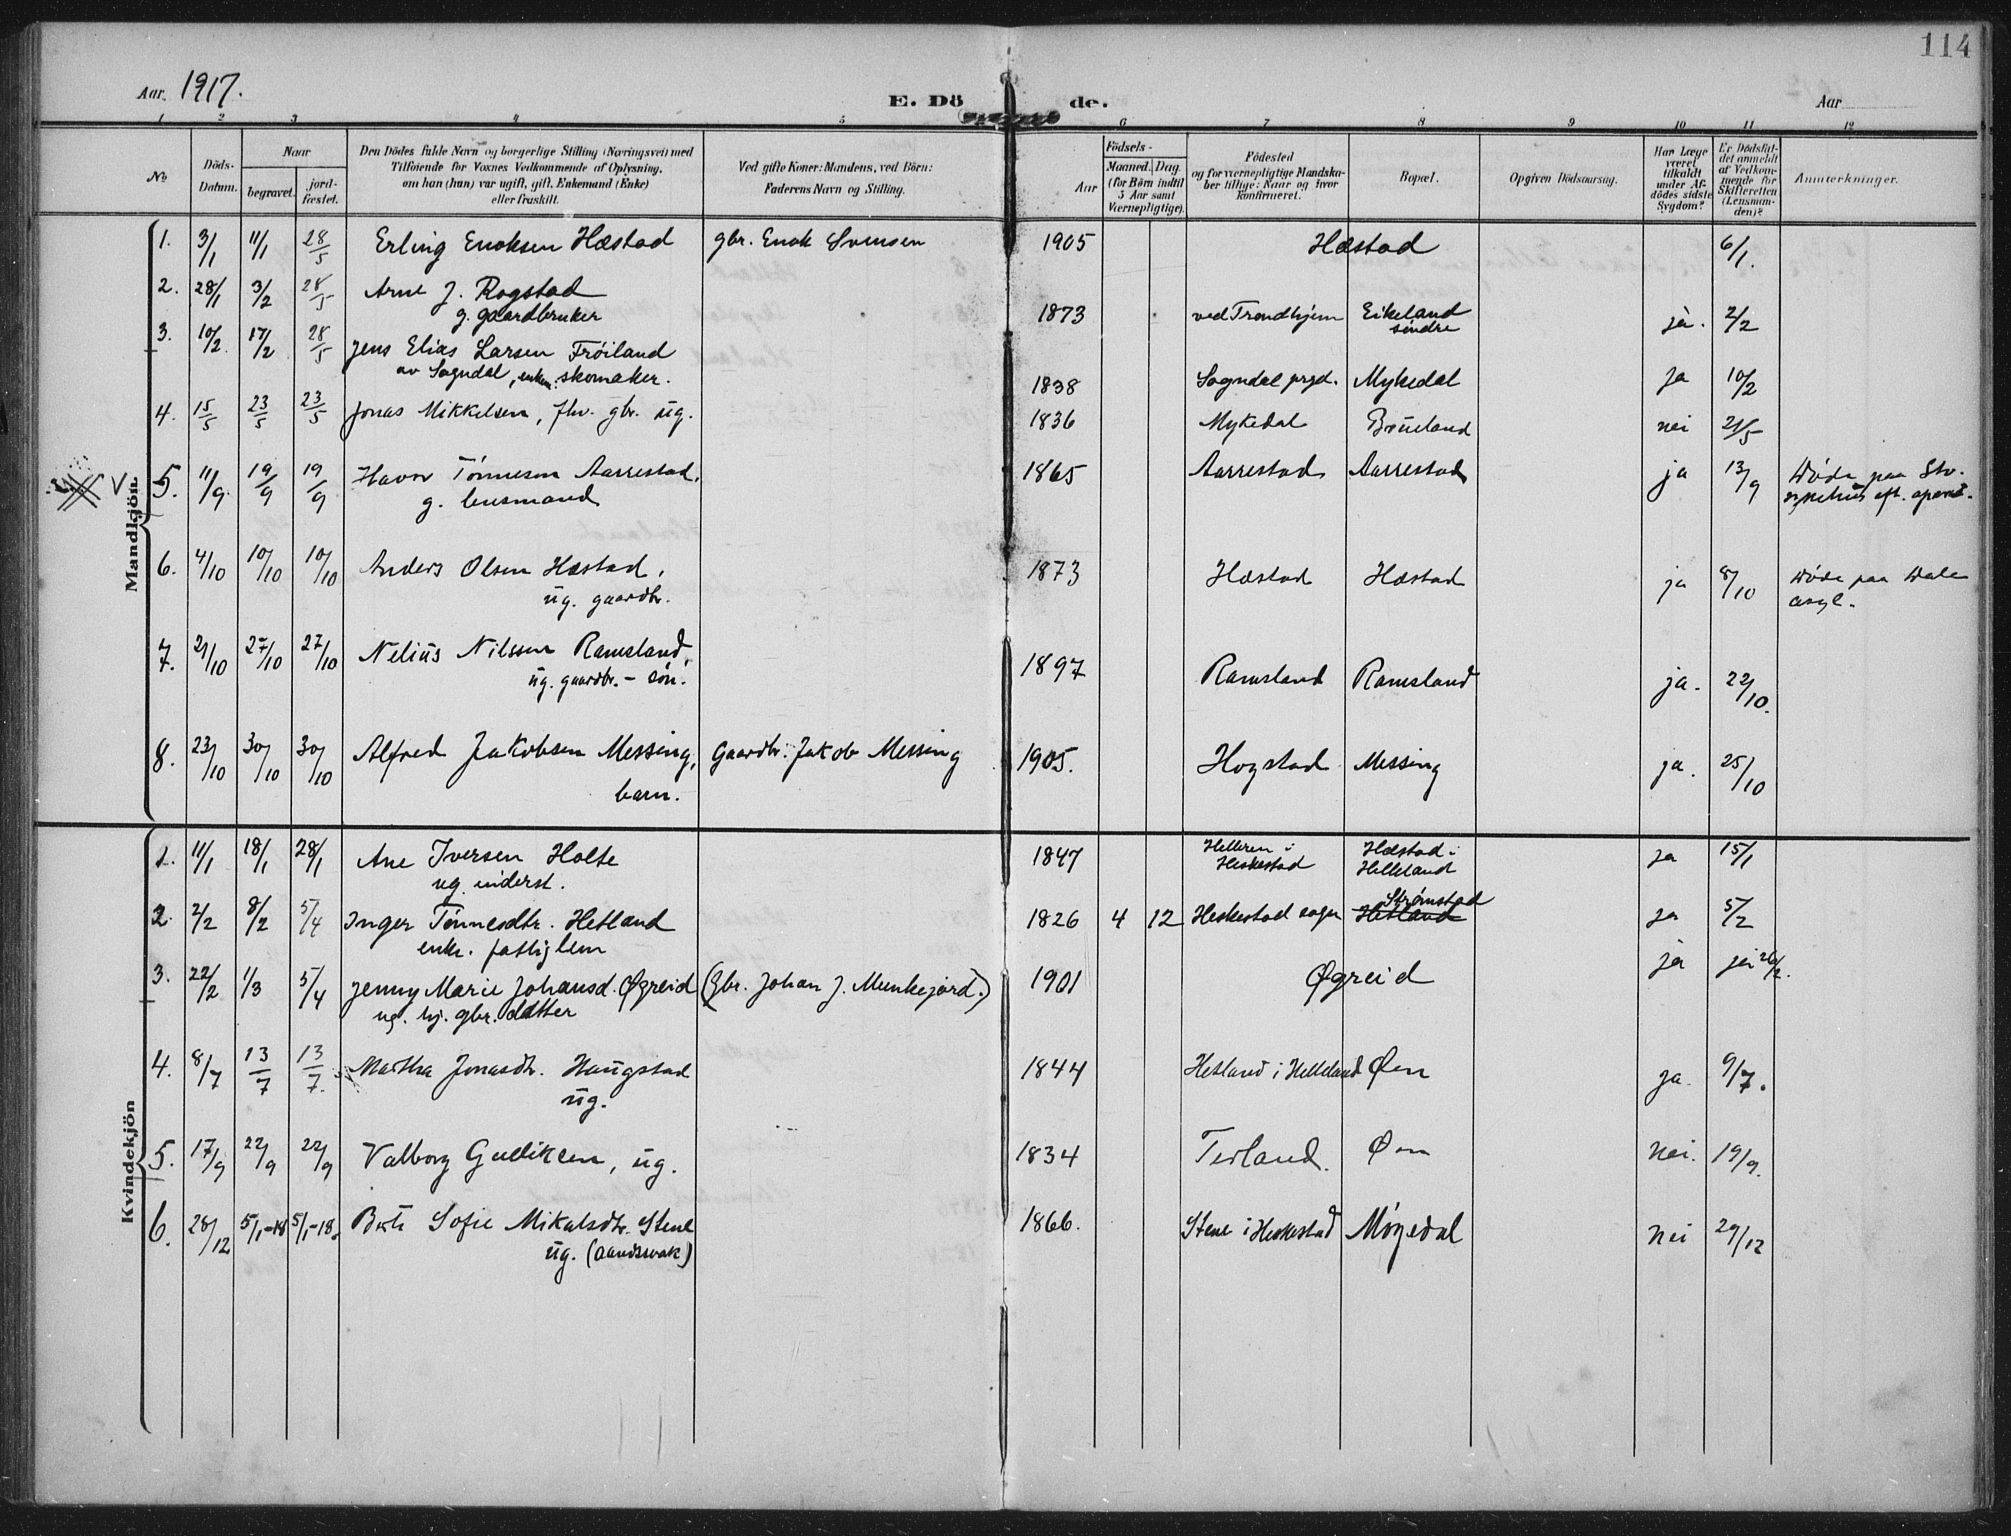 114
Aar 1917.
E. Dö de.
Aar
1 2 3 4 5 6 7 8 9 10 11 12
No
Döds-Datum.
Naar
begravet.
jord-fæstet.
Den Dödes fulde Navn og borgerlige Stilling (Næringsvei) med
Tilföiende for Voxnes Vedkommende af Oplysning,
om han (hun) var ugift, gift, Enkemand (Enke)
eller fraskilt.
Ved gifte Koner: Mandens, ved Börn:
Faderens Navn og Stilling.
Födsels-
Aar
Maaned. Dag.
(for Börn indtil
5 Aar samt
Værnepligtige).
Födested
og for værnepligtige Mandska-
ber tillige: Naar og hvor
konfirmeret.
Bopæl.
Opgiven Dödsaarsag.
Har Læge
været
tilkaldt
under Af-
dödes sidste
Sygdom?
Er Dödsfal-
det anmeldt
af Vedkom-
mende for
Skifteretten
(Lensman-
den)?
Anmærkninger.
Mandkjön.
1. 3/1 11/1 28/5 Erling Enoksen Hæstad gbr. Enok Svensen 1905 Hæstad 6/1.
2. 28/1 3/2 28/5 Arne J. Rogstad
g. gaardbruker 1873 ved Trondhjem Eikeland
sindre ja. 2/2
3. 10/2 17/2 28/5 Jens Elias Larsen Frøiland
av Sogndal, enkem. skomaker. 1838 Sogndal prgd. Mykedal ja 10/2
4. 15/5 23/5 23/5 Jonas Mikkelsen, fhv. gbr. ug. 1836 Mykedal Brueland nei 21/5
V 5. 11/9 19/9 19/9 Havor Tønnesen Aarrestad,
g. lensmand 1865 Aarrestad Aarrestad ja 13/9 Døde paa Stv.
sykehus eft. operat.
6. 4/10 10/10 10/10 Anders Olsen Hæstad,
ug. gaardbr. 1873 Hæstad Hæstad ja 8/10 Døde paa Dale
asyl.
7. 21/10 27/10 27/10 Nelius Nilssen Ramsland,
ug. gaardbr. - søn. 1897 Ramsland Ramsland ja. 22/10.
8. 23/10 30/10 30/10 Alfred Jakobsen Messing,
barn. Gaardbr. Jakob Messing 1905. Hogstad Messing ja. 25/10
Kvindekjön
1. 11/1 18/1 28/1 Ane Iversen Holte
ug. inderst. 1847 Helleren i
Heskestad Hæstad i
Helleland ja 15/1
2. 2/2 8/2 5/4 Inger Tønnesdtr. Hetland
enke. fattiglem 1826 4 12 Heskestad sogn Strømstad
Hetland ja 5/2
3. 22/2 1/3 5/4 Jenny Marie Johansd. Øgreid
ug. hj. gbr. datter (Gbr. Johan J. Munkejord.) 1901 Øgreid ja ja 26/2.
4. 8/7 13/7 13/7. Martha Jonasdtr. Haugstad
ug. 1844 Hetland i Helleland Øen ja. 9/7.
5. 17/9 22/9 22/9 Valborg Gulliksen, ug. 1834 Terland. Øen nei. 19/9.
6. 28/12 5/1-18 5/1-18. Berte Sofie Mikalsdtr. Stene
ug. (aandssvak) 1866. Stene i Heskestad Møgedal nei 29/12